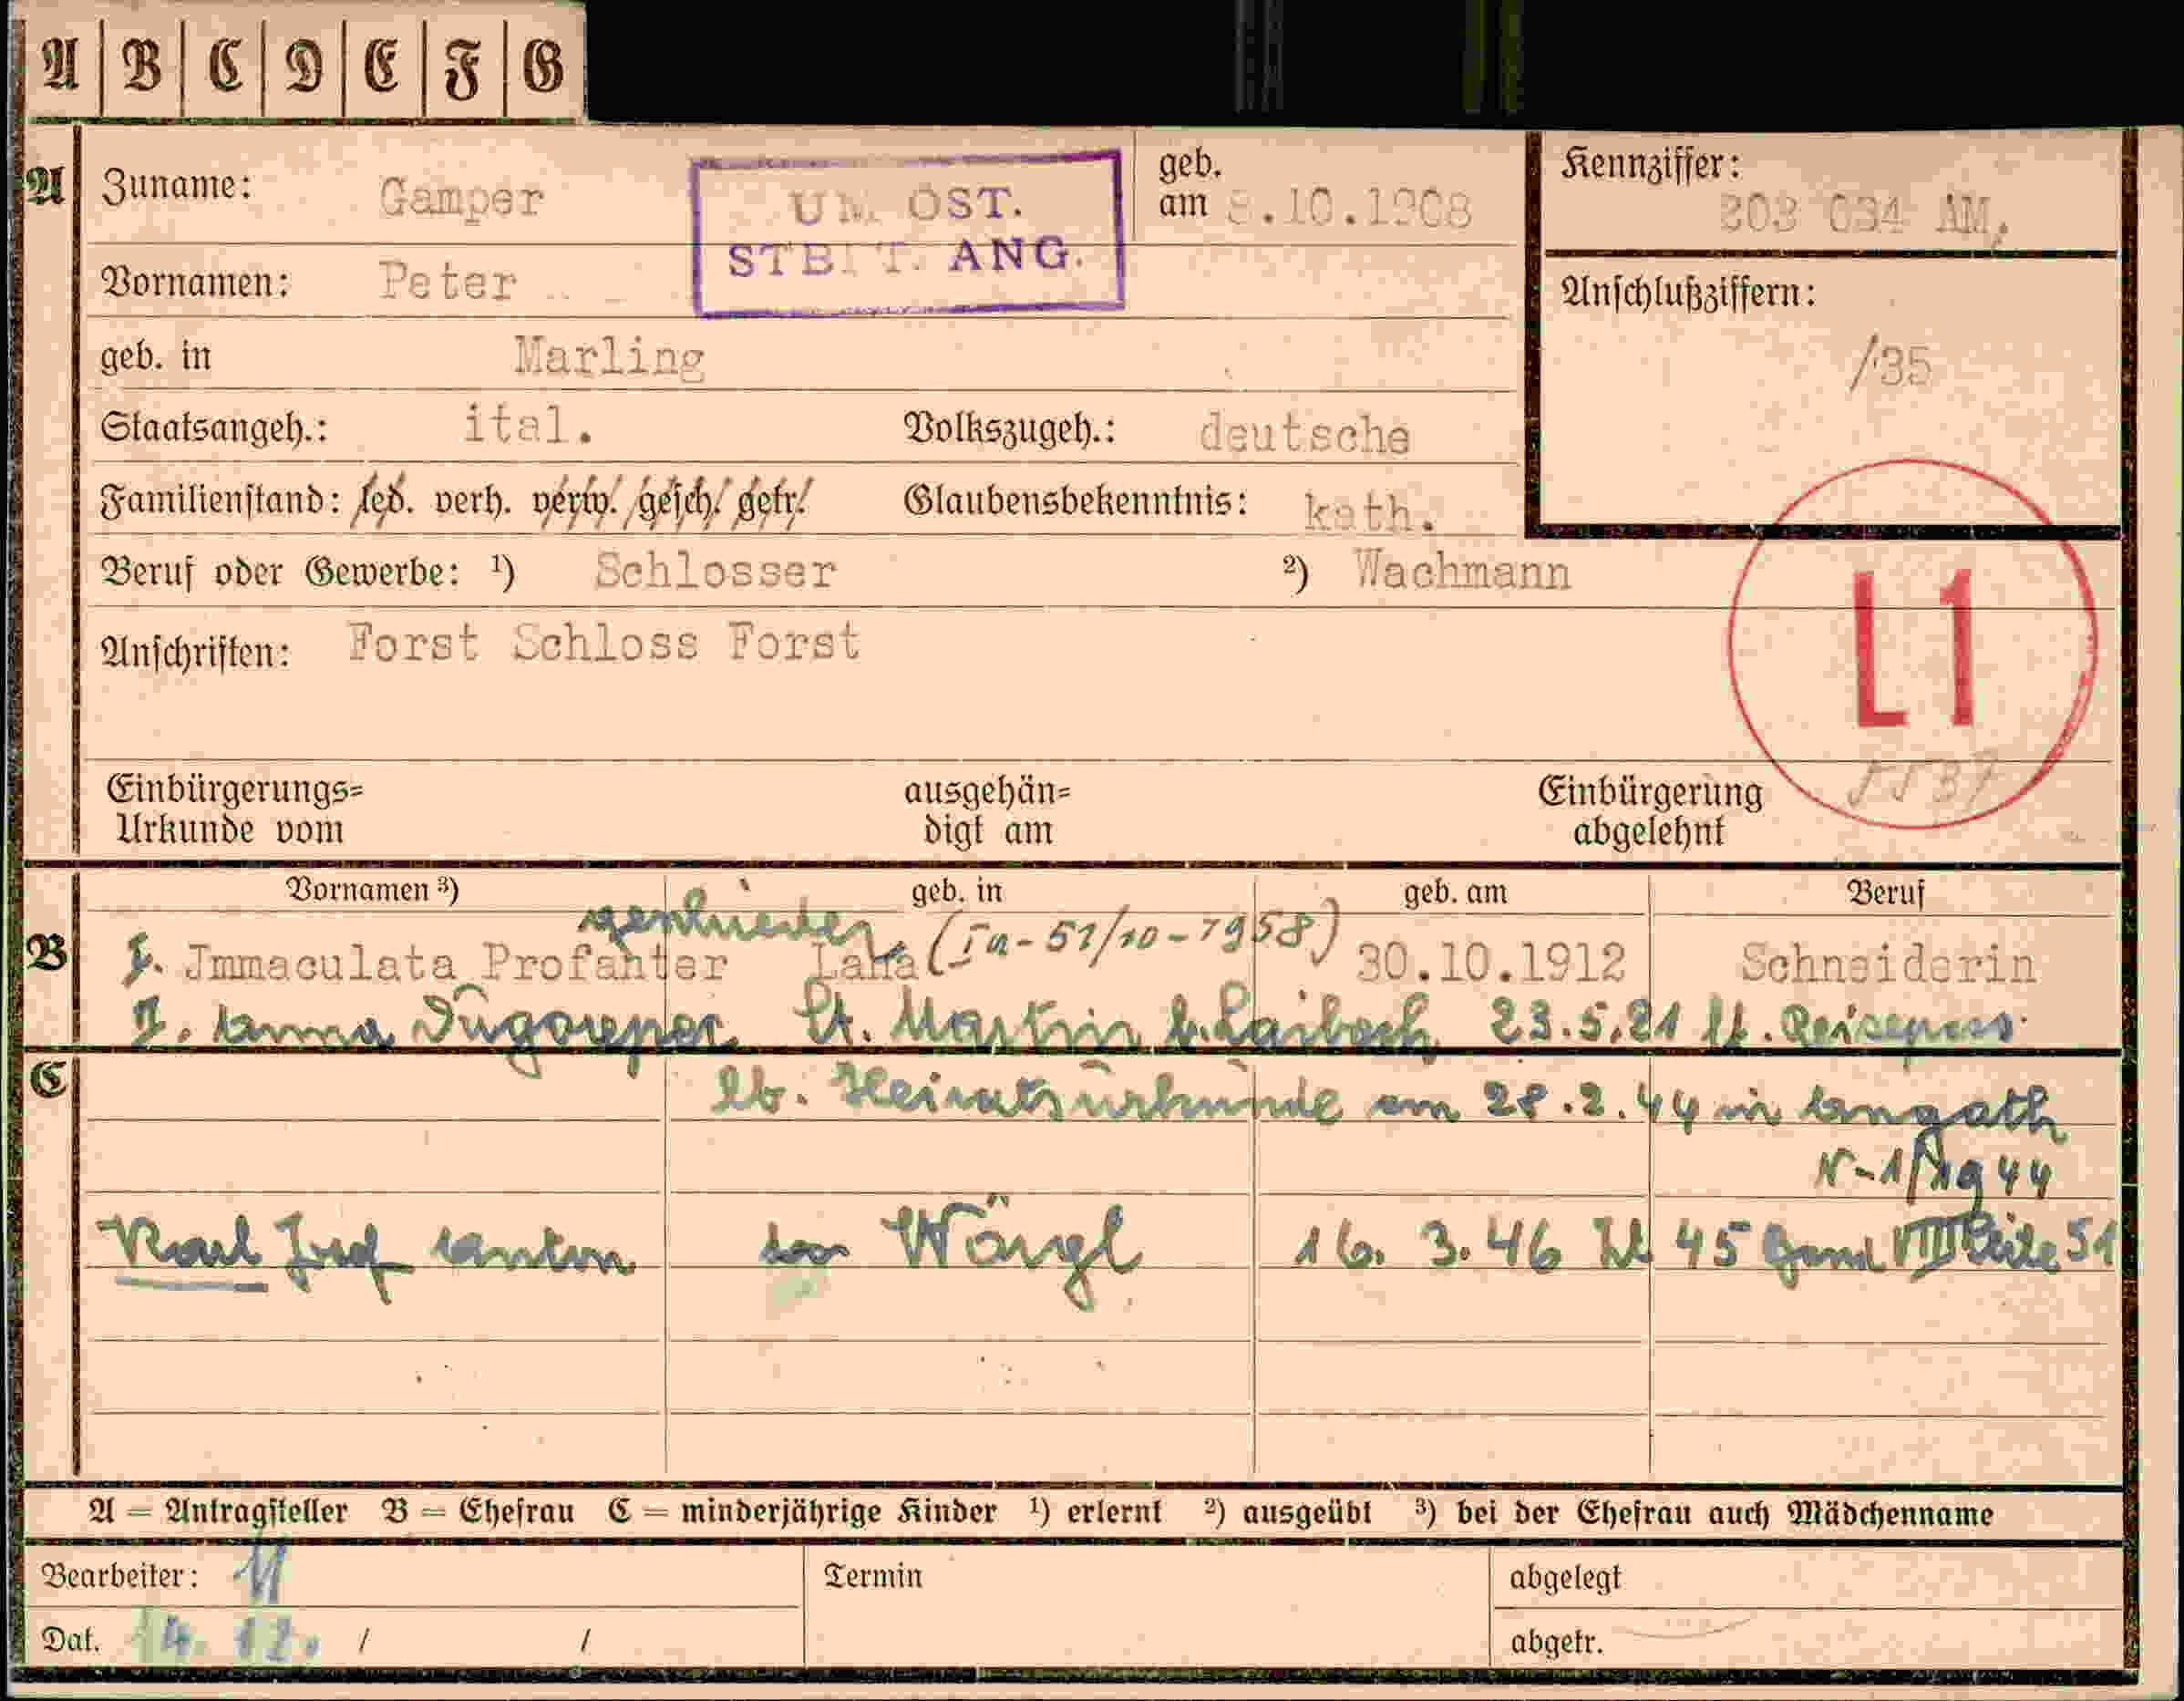 A B C D E F G
A Zuname: Gamper
UM ÖST.
STBÜT. ANG.
geb. am 8.10.1908
Kennziffer: 303 034 AM,
Vornamen: Peter
Anschlußziffern:
/35
geb. in Marling
Staatsangeh.: ital. Volkszugeh.: deutsche
Familienstand: led. verh. verw. gesch. getr. Glaubensbekenntnis: kath.
Beruf oder Gewerbe: ¹) Schlosser ²) Wachmann
Anschriften: Forst Schloss Forst
L1
Einbürgerungs=
Urkunde vom
ausgehän=
digt am
Einbürgerung
abgelehnt
Vornamen ³) geb. in geb. am Beruf
geschieden (Ia-51/10-1958)
B I. Jmmaculata Profanter Lana 30.10.1912 Schneiderin
II. Anna St. Martin b. Laibach 23.5.21 lt. Reisepass.
C
lt. Heiratsurkunde am 28.2.44 in Angath
44
Karl Josef Anton Wörgl 16. 3. 46 45 Band VIII Seite 51
A = Antragsteller B = Ehefrau C = minderjährige Kinder ¹) erlernt ²) ausgeübt ³) bei der Ehefrau auch Mädchenname
Bearbeiter: Termin abgelegt
Dat. 14. 12. / / abgetr.